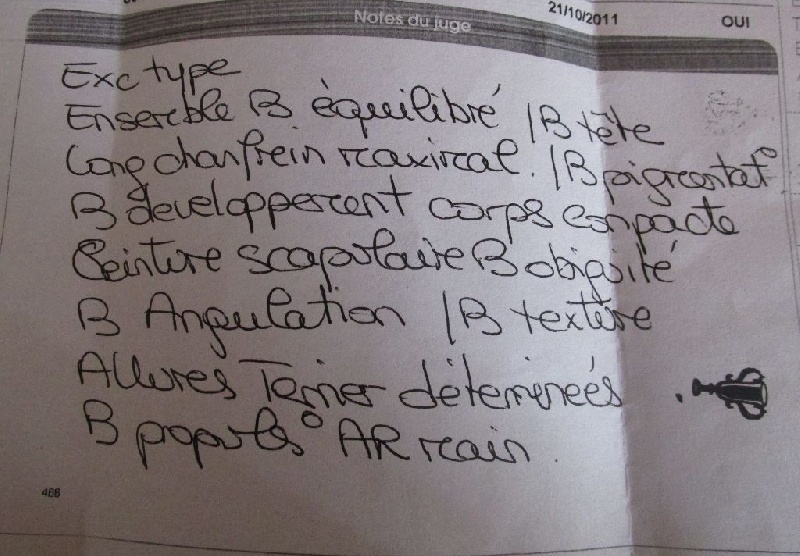 Notes du juge
21/10/2011
OUI
Exc type
Ensemble B équilibré / B tête
Long chanfrein maximal. / B pigmentat°
B developpement corps compacte
Ceinture scapulaire B obiquité
B Angulation / B texture
Allures Terrier déterminées
B propuls° AR main.
466